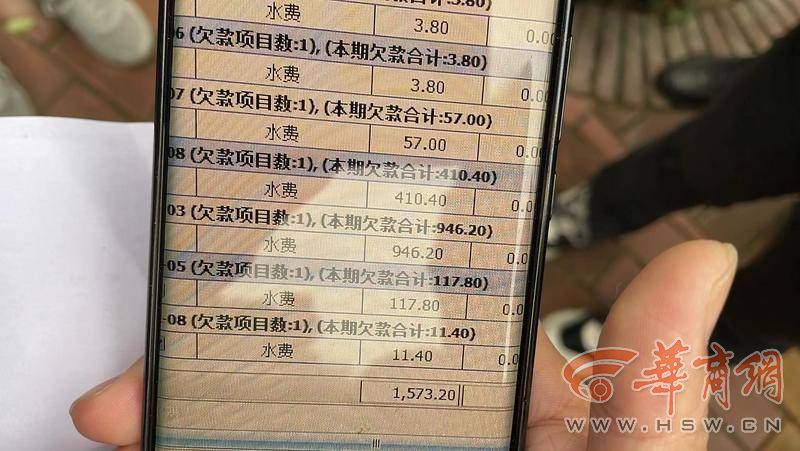 3.80)
水费 3.80 0.00
06 (欠款项目数:1), (本期欠款合计:3.80)
水费 3.80 0.00
07 (欠款项目数:1), (本期欠款合计:57.00)
水费 57.00 0.0
08 (欠款项目数:1), (本期欠款合计:410.40)
水费 410.40 0.0
03 (欠款项目数:1), (本期欠款合计:946.20)
水费 946.20 0.0
-05 (欠款项目数:1), (本期欠款合计:117.80)
水费 117.80 0.0
-08 (欠款项目数:1), (本期欠款合计:11.40)
水费 11.40 0.0
1,573.20
華商網
WWW.HSW.CN